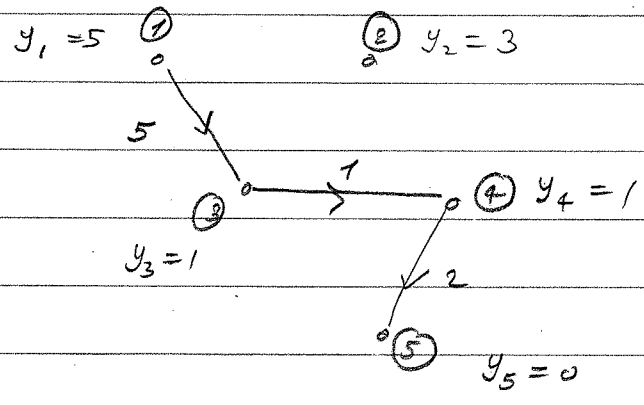 y₁ = 5 ① ② y₂ = 3
5
1
③ ④ y₄ = 1
y₃ = 1
2
⑤
y₅ = 0